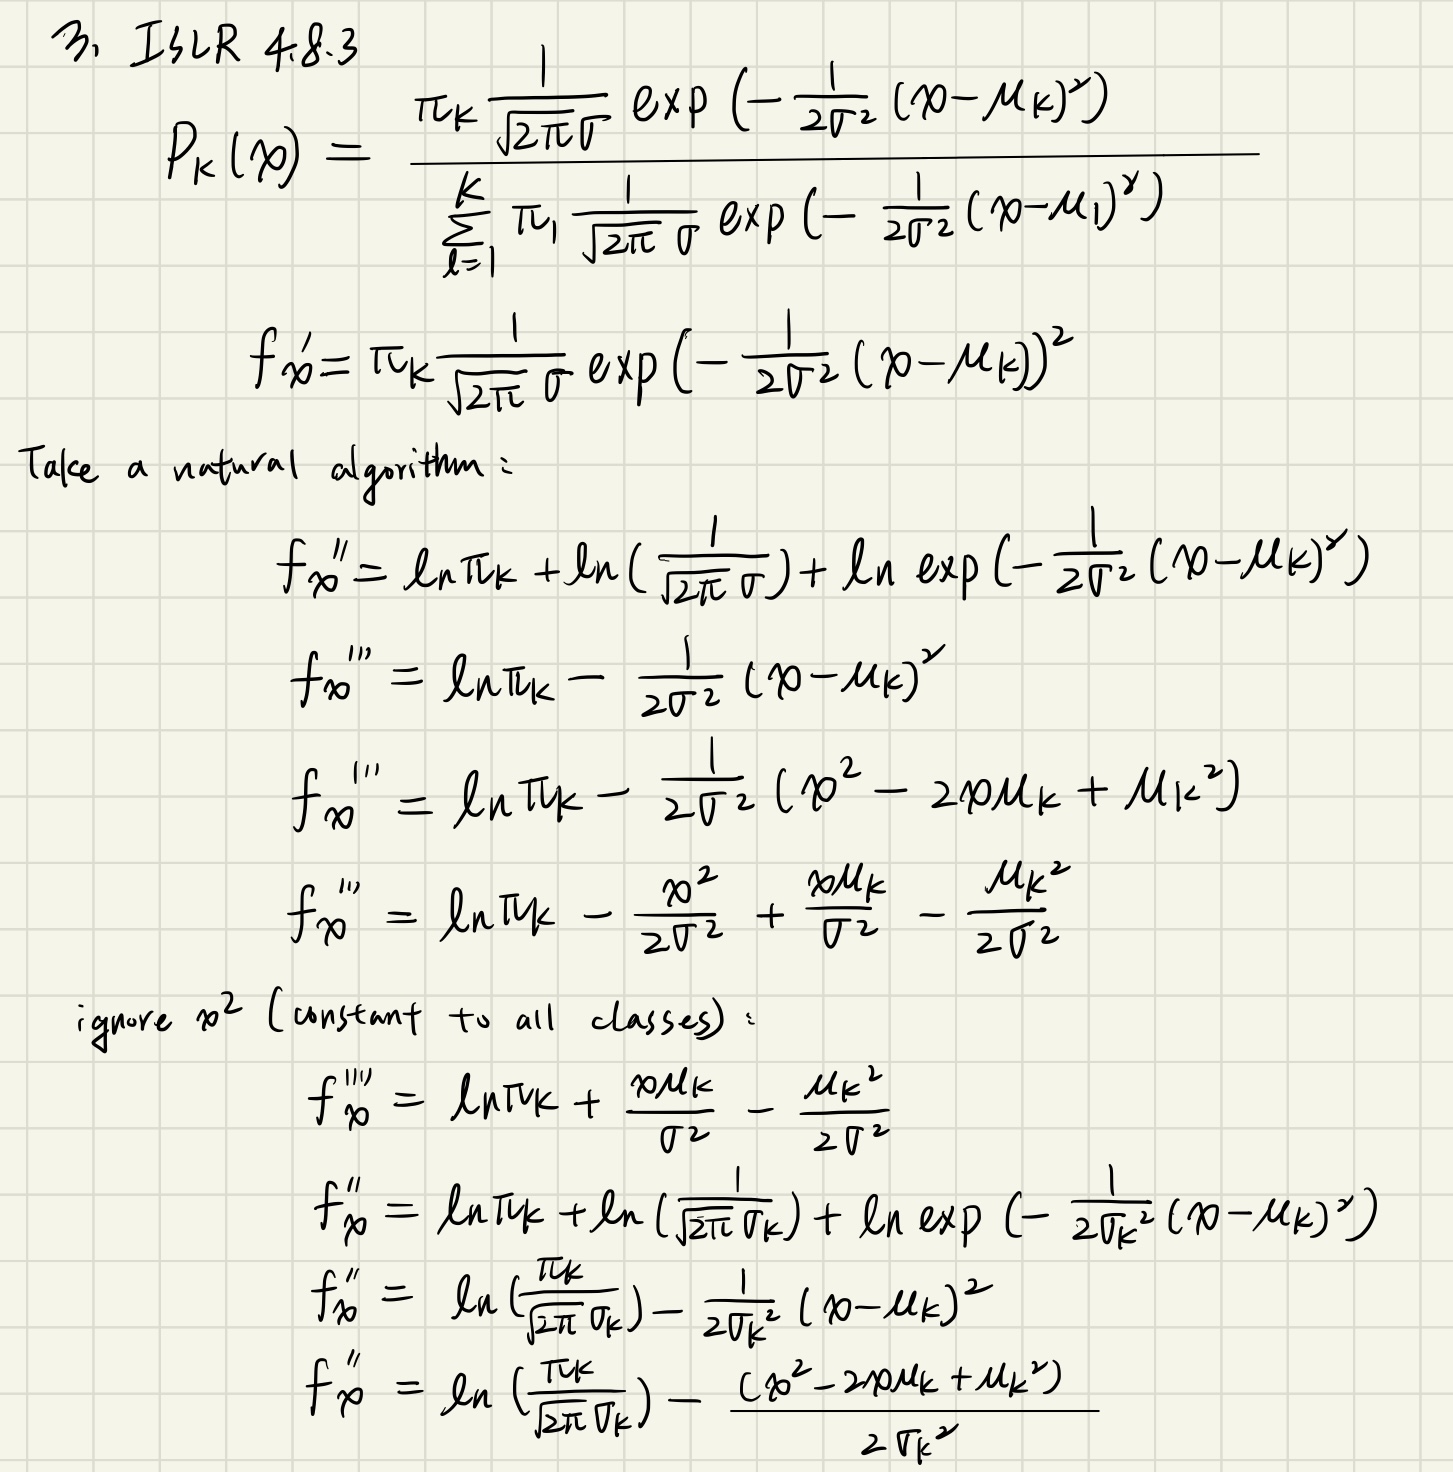 3. ISLR 4.8.3
P_K(x) = \frac{π_K \frac{1}{\sqrt{2π}σ} exp(-\frac{1}{2σ^2}(x-μ_K)^2)}{\sum_{l=1}^{K} π_l \frac{1}{\sqrt{2π}σ} exp(-\frac{1}{2σ^2}(x-μ_l)^2)}
f_x' = π_K \frac{1}{\sqrt{2π}σ} exp(-\frac{1}{2σ^2}(x-μ_K))^2
Take a natural algorithm:
f_x'' = lnπ_K + ln(\frac{1}{\sqrt{2π}σ}) + ln exp(-\frac{1}{2σ^2}(x-μ_K)^2)
f_x''' = lnπ_K - \frac{1}{2σ^2}(x-μ_K)^2
f_x''' = lnπ_K - \frac{1}{2σ^2}(x^2 - 2xμ_K + μ_K^2)
f_x''' = lnπ_K - \frac{x^2}{2σ^2} + \frac{xμ_K}{σ^2} - \frac{μ_K^2}{2σ^2}
ignore x^2 (constant to all classes):
f_x'''' = lnπ_K + \frac{xμ_K}{σ^2} - \frac{μ_K^2}{2σ^2}
f_x'' = lnπ_K + ln(\frac{1}{\sqrt{2π}σ_K}) + ln exp(-\frac{1}{2σ_K^2}(x-μ_K)^2)
f_x'' = ln(\frac{π_K}{\sqrt{2π}σ_K}) - \frac{1}{2σ_K^2}(x-μ_K)^2
f_x'' = ln(\frac{π_K}{\sqrt{2π}σ_K}) - \frac{(x^2-2xμ_K+μ_K^2)}{2σ_K^2}